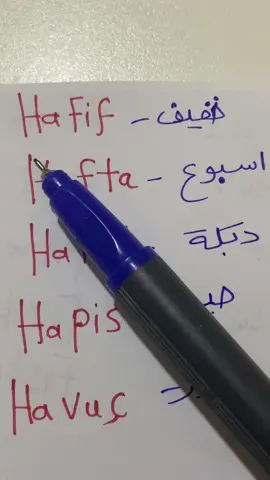 Hafif - خفيف
Hafta - اسبوع
دبكة
Hapis
Havuç